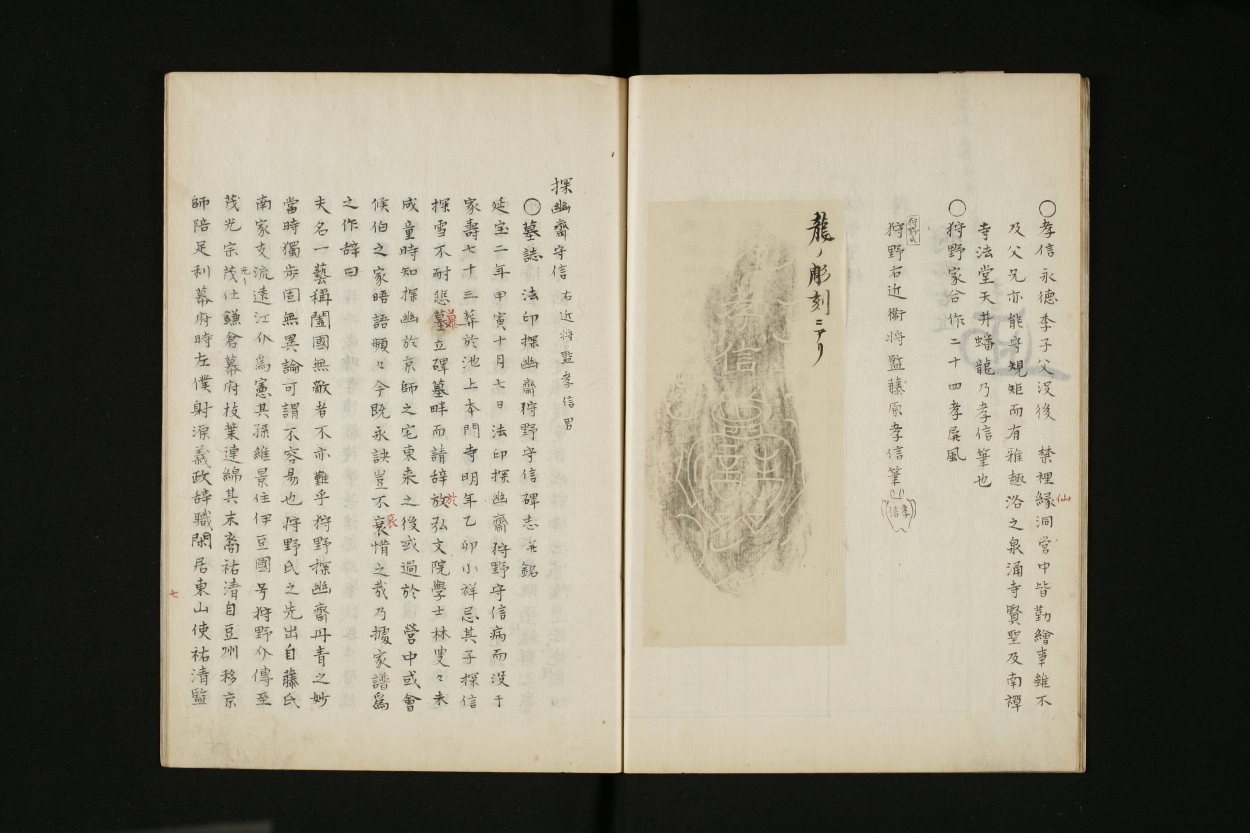 ○孝信永徳季子父没後 禁裡縁洞営中皆勤繪事雖不
仙
及父兄亦能守規矩而有雅趣洛之泉涌寺賢聖及南禪
寺法堂天井蟠龍乃孝信筆也
○狩野家合作二十四孝屏風
狩野氏
狩野右近衛将監藤原孝信筆
孝信
龍ノ彫刻ニアリ
孝信
探幽齋守信 右近将監孝信男
○墓誌 法印探幽齋狩野守信碑志并銘
延宝二年甲寅十月七日法印探幽齋狩野守信病而没于
家壽七十三葬於池上本門寺明年乙卯小祥忌其子探信
探雪不耐悲墓立碑墓畔而請辞放弘文院學士林叟々未
慕
於
成童時知探幽於京師之宅東来之後或過於 營中或會
候伯之家晤語頻々今既永訣豈不衰惜之哉乃據家譜為
哀
之作辞曰
夫名一藝稱闔國無敵者不亦難乎狩野探幽齋丹青之妙
當時獨歩固無異論可謂不容易也狩野氏之先出自藤氏
南家支流遠江介為憲其孫維景住伊豆國号狩野介傳至
茂光宗茂仕鎌倉幕府枝葉連綿其末裔祐清自豆州移京
師陪足利幕府時左僕射源義政辞職閑居東山使祐清監
七